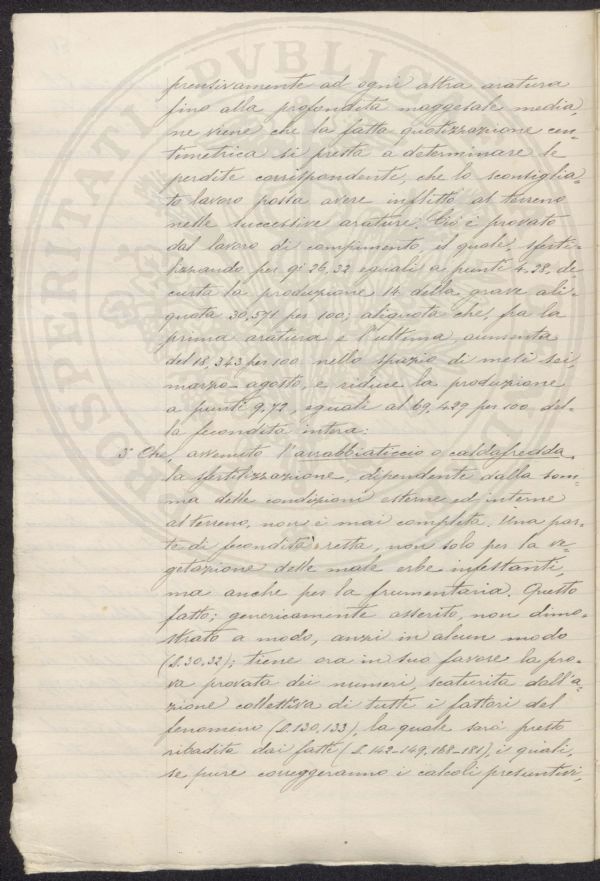 prensivamente ad ogni altra aratura
fino alla profondità maggesale media,
ne viene che la fatta quotizzazione cen-
timetrica si presta a determinare le
perdite corrispondenti, che lo sconsiglia-
to lavoro possa avere inflitto al terreno
nelle successive arature. Ciò è provato
dal lavoro di compimento, il quale, sferti-
lizzando per gi 26,32 eguali a punti 4.28, de
curta la produzione 14 della grave ali-
quota 30,571 per 100; aliquota che, fra la
prima aratura e l'ultima, aumenta
del 18,343 per 100 nello spazio di mesi sei,
marzo-agosto, e riduce la produzione
a punti 9,72, eguali al 69,429 per 100 del-
la fecondità intera:
3° Che, avvenuto l'arrabbiaticcio o caldafredda,
la sfertilizzazione, dipendente dalla som-
ma delle condizioni esterne ed interne
al terreno, non è mai completa. Una par-
te di fecondità resta, non solo per la ve-
getazione delle male erbe infestanti,
ma anche per la frumentaria. Questo
fatto; genericamente asserito, non dimo-
strato a modo, anzi in alcun modo
(§.30,32); tiene ora in suo favore la pro-
va provata dei numeri, scaturita dall'a-
zione collettiva di tutti i fattori del
fenomeno (§.130,133), la quale sarà presto
ribadita dai fatti (§.142-149,168-181), i quali,
se pure correggeranno i calcoli presuntivi,
PROSPERITATI PVBLICAE